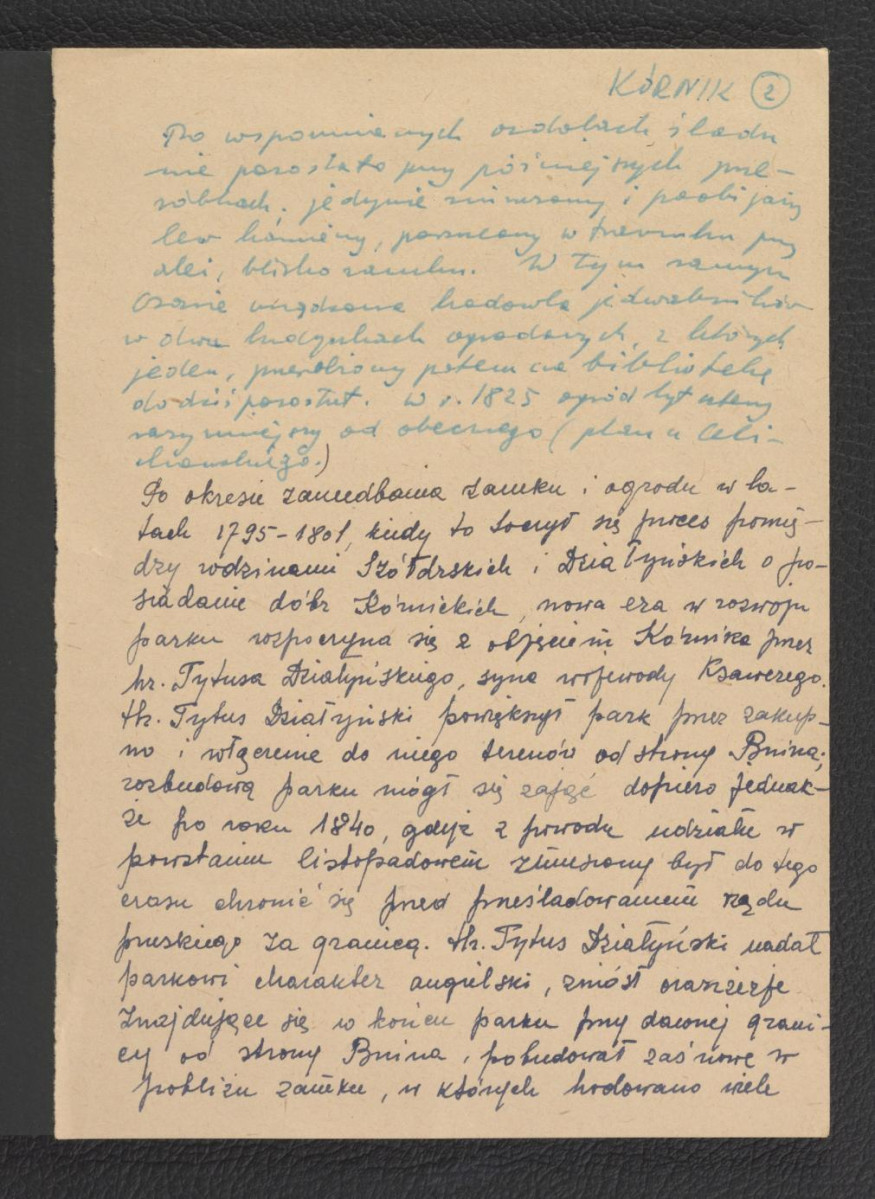 KÓRNIK 2
Po wspomnianych ozdobach śladu
nie pozostało przy późniejszych prze-
róbkach, jedynie zniszczony i poobijany
lew kamienny, porzucony w trawniku przy
alei, blisko zamku. W tym samym
czasie urządzono hodowlę jedwabników
w dwu budynkach ogrodowych, z których
jeden, przerobiony potem na bibliotekę
do dziś pozostał. W r. 1825 ogród był
mniejszy od obecnego (plan u Celi-
chowskiego.)
Po okresie zaniedbania zamku i ogrodu w la-
tach 1795-1801, kiedy to toczył się proces pomię-
dzy rodzinami Szółdrskich i Działyńskich o po-
siadanie dóbr Kórnickich, nowa era w rozwoju
parku rozpoczyna się z objęciem Kórnika przez
hr. Tytusa Działyńskiego, syna wojewody Ksawerego.
Hr. Tytus Działyński powiększył park przez zakup-
no i włączenie do niego terenów od strony Bnina;
rozbudową parku mógł się zająć dopiero jednak-
że po roku 1840, gdyż z powodu udziału w
powstaniu listopadowem zmuszony był do tego
czasu chronić się przed prześladowaniem rządu
pruskiego za granicą. Hr. Tytus Działyński nadał
parkowi charakter angielski, zniósł oranżerje
znajdujące się w końcu parku przy dawnej grani-
cy od strony Bnina, pobudował zaś nowe w
pobliżu zamku, w których hodowano wiele